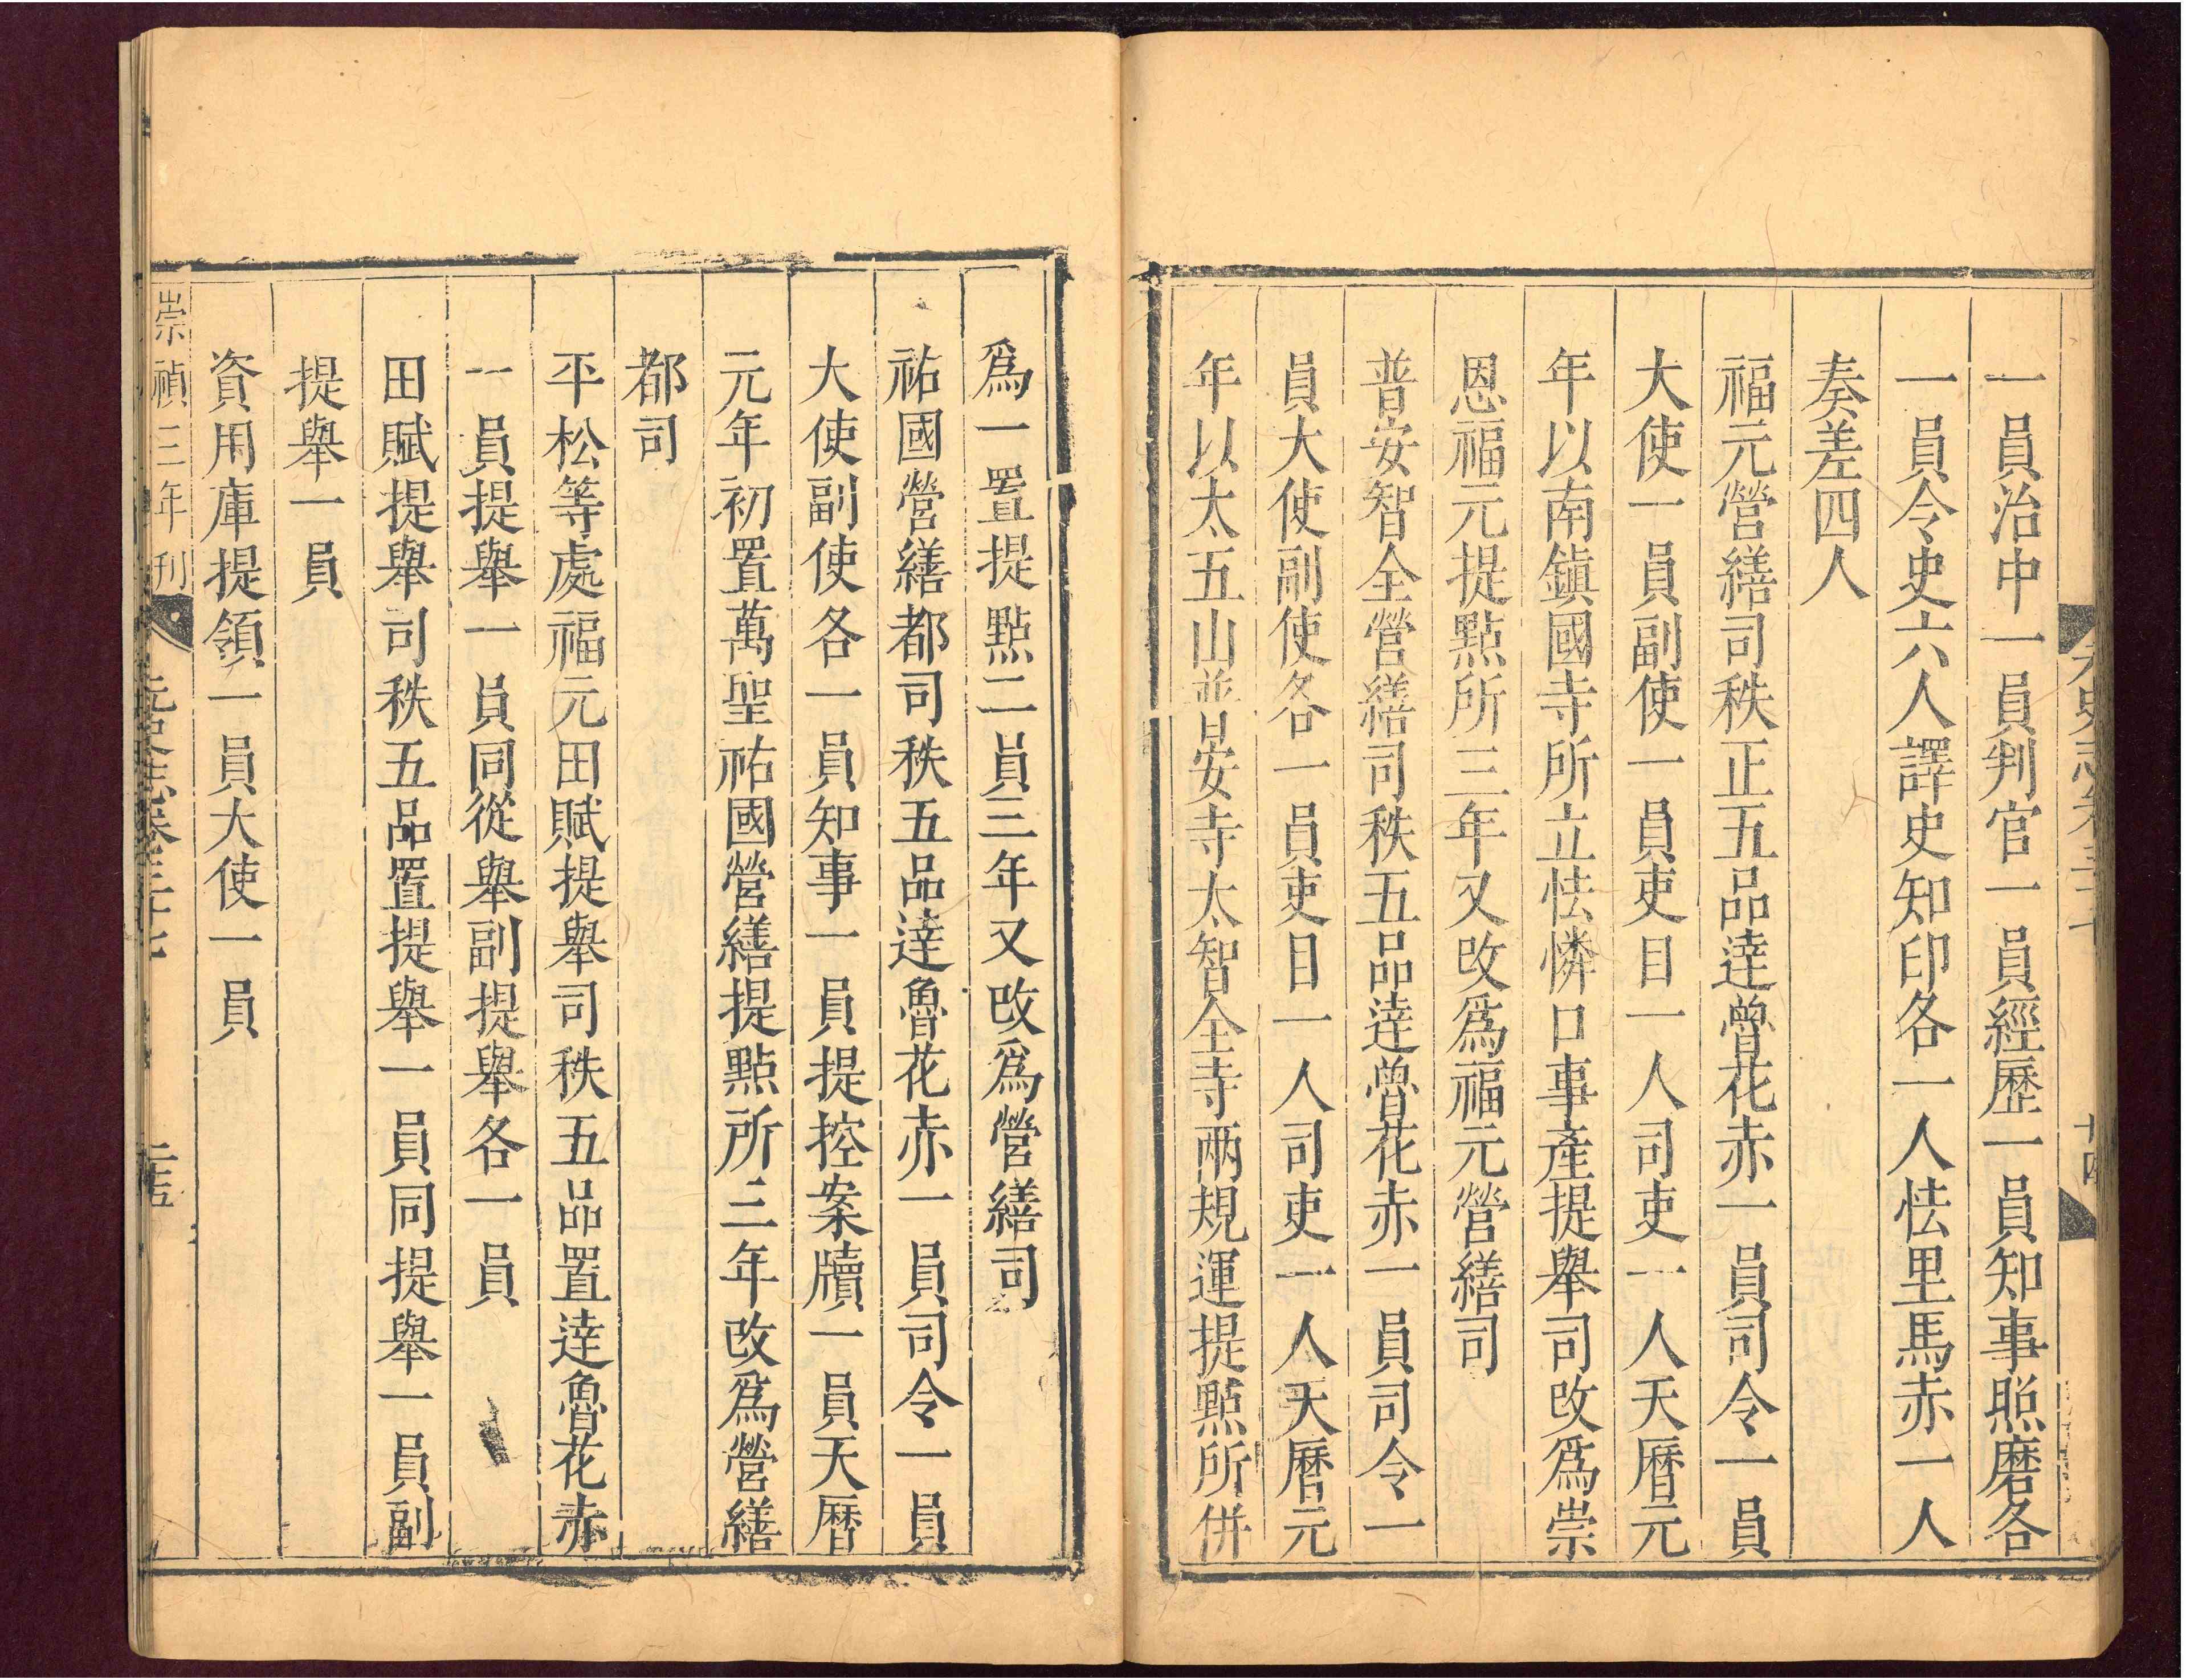 一員治中一員判官一員經歷一員知事照磨各
一員令史六人譯史知印各一人怯里馬赤一人
奏差四人
福元營繕司秩正五品達魯花赤一員司令一員
大使一員副使一員吏目一人司吏一人天曆元
年以南鎮國寺所立怯憐口事產提舉司改爲崇
恩福元提點所三年又改爲福元營繕司
普安智全營繕司秩五品達魯花赤一員司令一
員大使副使各一員吏目一人司吏一人天曆元
年以太五山普安寺太智全寺兩規運提點所併
爲一置提點二員三年又改爲營繕司
祐國營繕都司秩五品達魯花赤一員司令一員
大使副使各一員知事一員提控案牘一員天曆
元年初置萬聖祐國營繕提點所三年改爲營繕
都司
平松等處福元田賦提舉司秩五品置達魯花赤
一員提舉一員同從舉副提舉各一員
田賦提舉司秩五品置提舉一員同提舉一員副
提舉一員
資用庫提領一員大使一員
崇禎三年刊